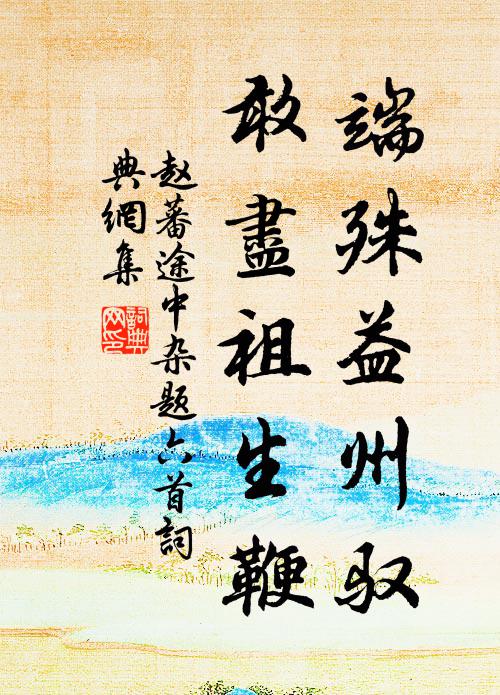 端殊益州驭
敢盡祖生鞭
赵蕃途中杂题六首詞
典網集
詞典网印